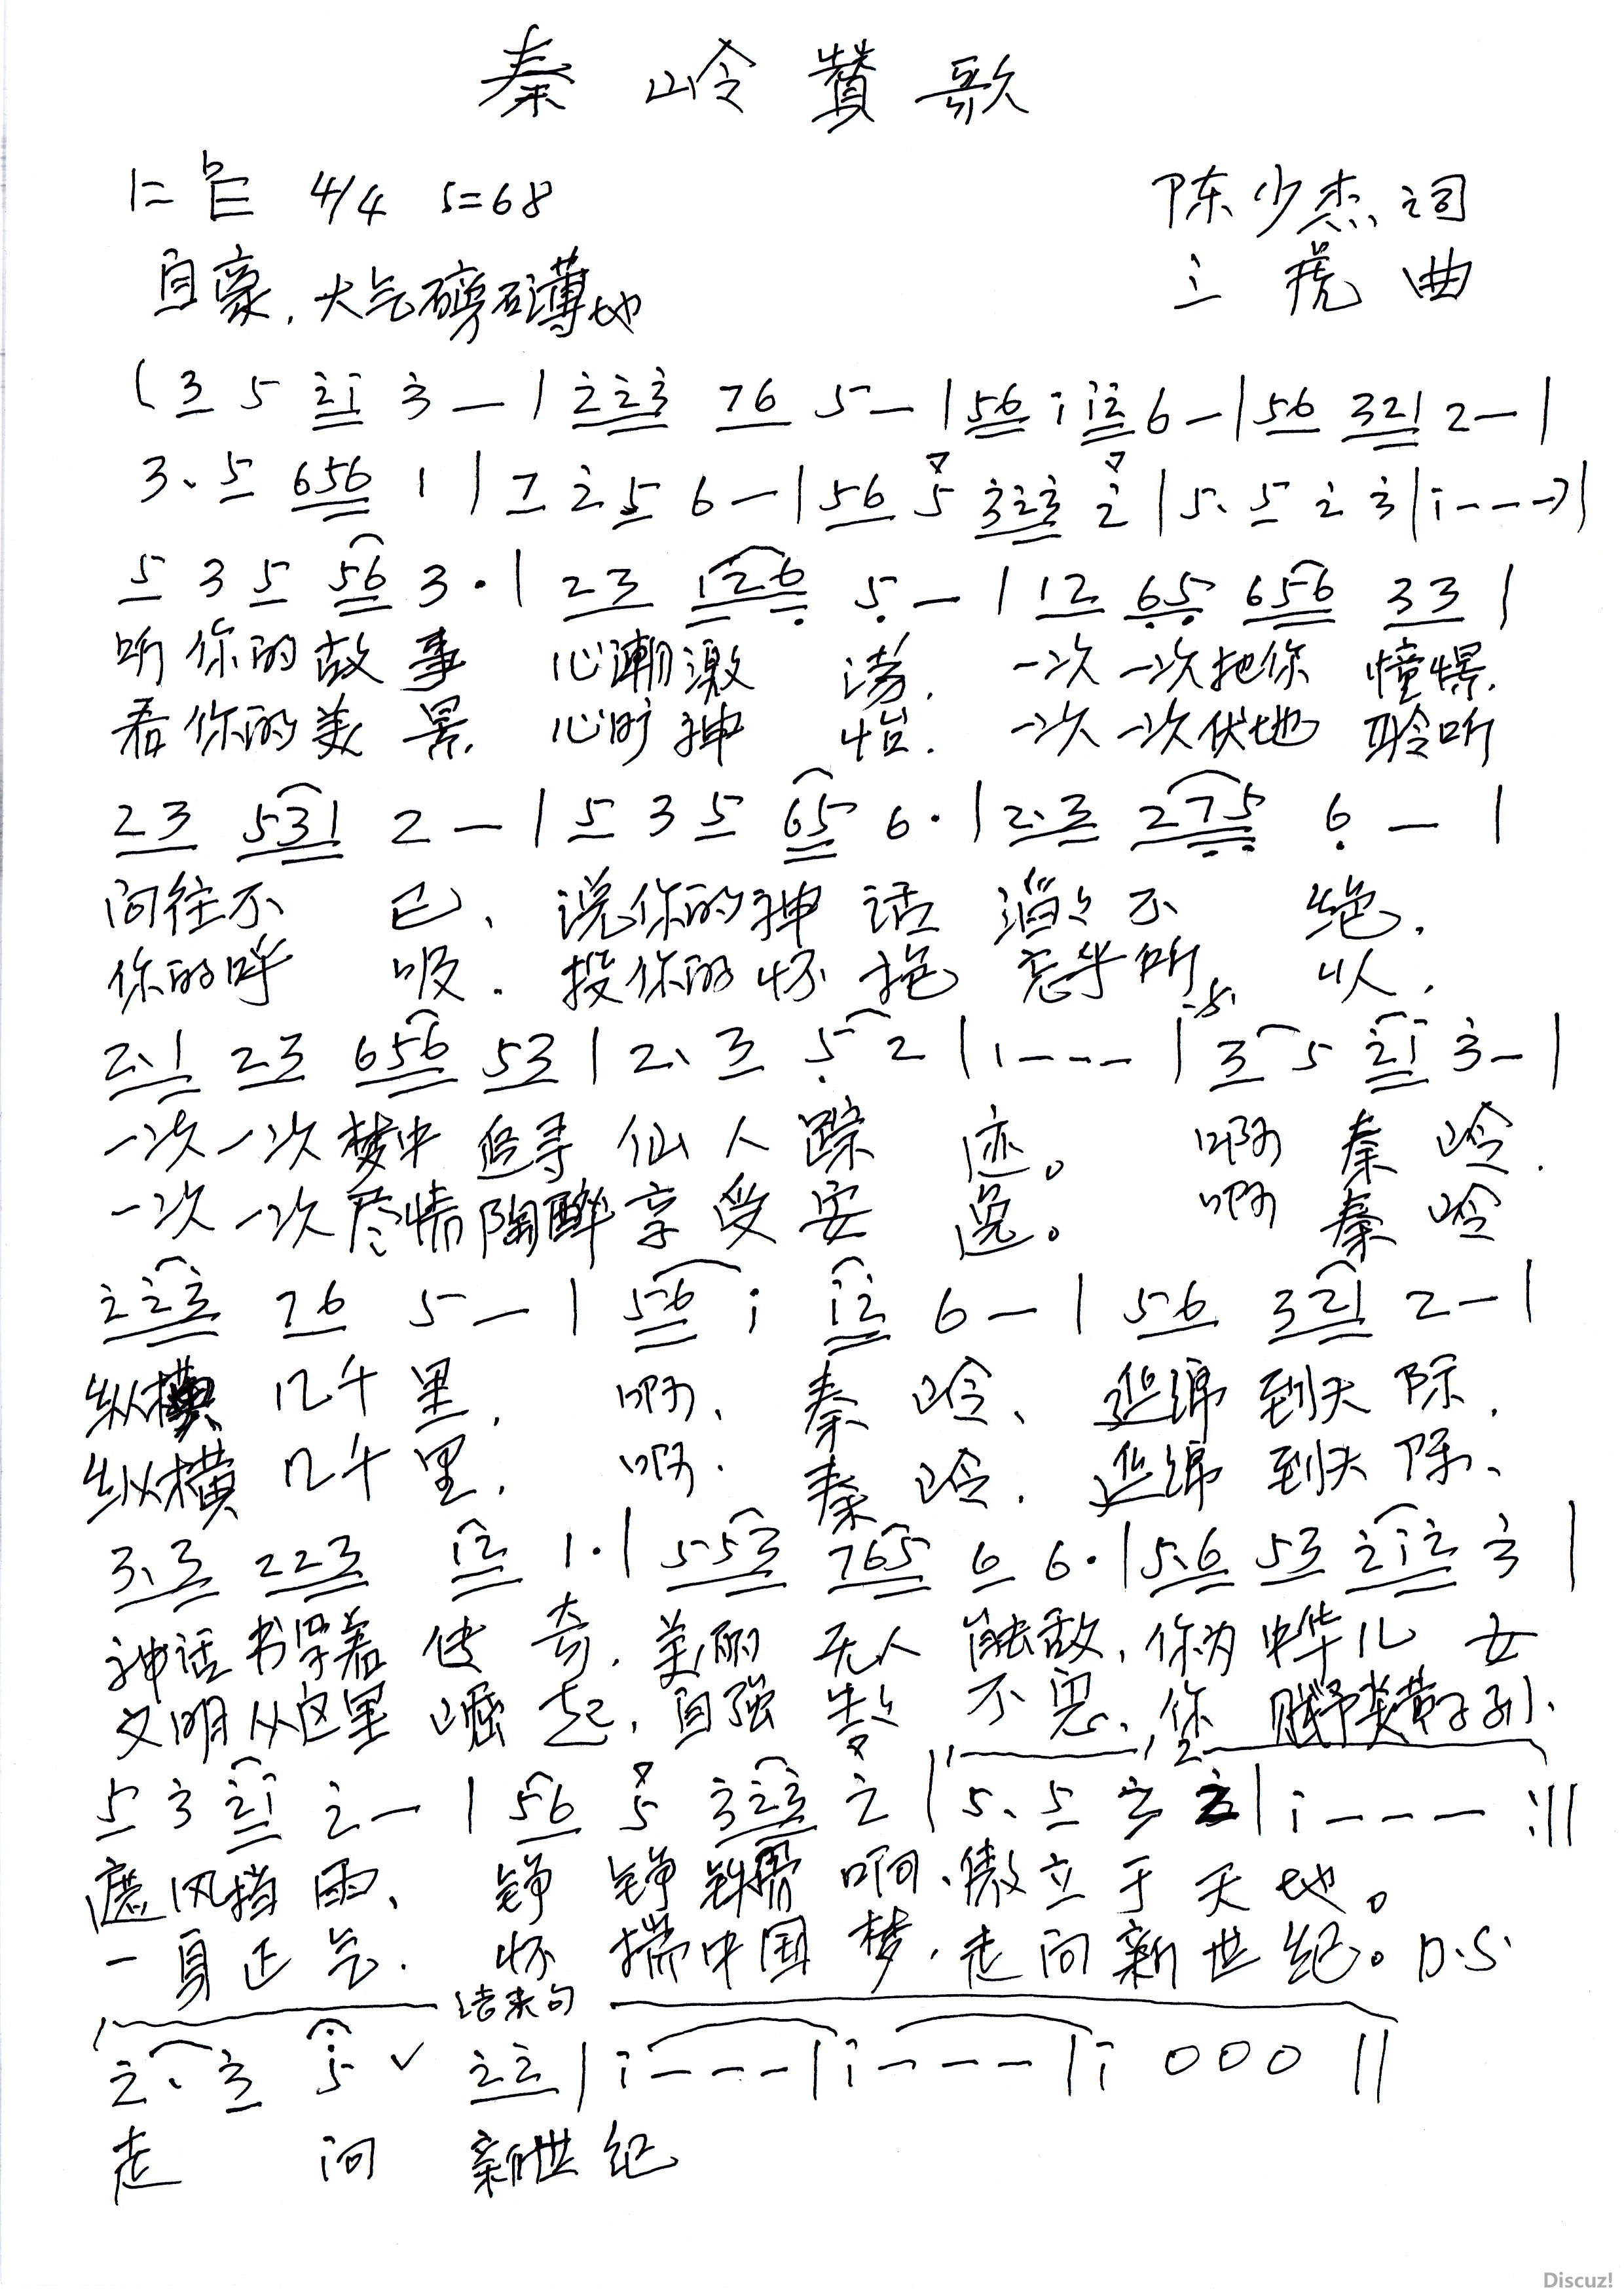 秦岭赞歌
1=ᵇE 4/4 5=68 陈少杰词
自豪.大气磅礴地 三虎曲
(3 5 2̇1̇ 3̇ — | 2̇2̇3̇ 76 5 — | 56 1̇ 1̇2̇ 6 — | 56 321 2 — |
3. 5 656 1 | 7 2̇ 5 6 — | 56 5 3̇2̇3̇ 2̇ | 5. 5 2̇ 3̇ | 1̇ - - - ) |
5 3 5 56 3 . | 23 126̣ 5̣ — | 12 6̣5̣ 656 33 |
听你的故事 心潮激 荡. 一次一次把你 憧憬.
看你的美景. 心旷神 怡. 一次一次伏地 聆听
23 531 2 — | 5 3 5 65 6 . | 2.3 27̣5̣ 6̣ — |
向往不 已、说你的神话 滔々不 绝.
你的呼 吸. 投你的怀抱 忘乎所 以.
2.1 23 656 53 | 2. 3 5̣ 2 | 1 - - - | 3 5 2̇1̇ 3̇ - |
一次一次梦中追寻仙人踪 迹。 啊 秦岭.
一次一次尽情陶醉享受安 逸。 啊 秦岭
2̇2̇3̇ 76 5 — | 56 1̇ 1̇2̇ 6 — | 56 321 2 — |
纵横 几千里. 啊、 秦岭、 延绵到天际.
纵横 几千里. 啊. 秦岭. 延绵到天际、
3.3 223 1̇2 1 . | 553 765 6 6 . | 5.6 53 2̇1̇2̇ 3̇ |
神话书写着 传奇. 美丽 无人 能敌, 你为中华儿女
文明从这里 崛起, 自强 生々 不息、你 赋予炎黄子孙、
5 3̇ 2̇1̇ 2̇ — | 56 5 3̇2̇3̇ 2̇ | 5. 5 2̇ 2̇ | 1̇ - - - :||
遮风挡雨、 铮铮铁骨啊、傲立于天地。
一身正气. 怀揣中国梦. 走向新世纪。D.S.
结束句
2̇. 3̇ 5̇ ∨ 2̇2̇ | 1̇ - - - | 1̇ - - - | 1̇ 0 0 0 ||
走 向 新世纪
Discuz!